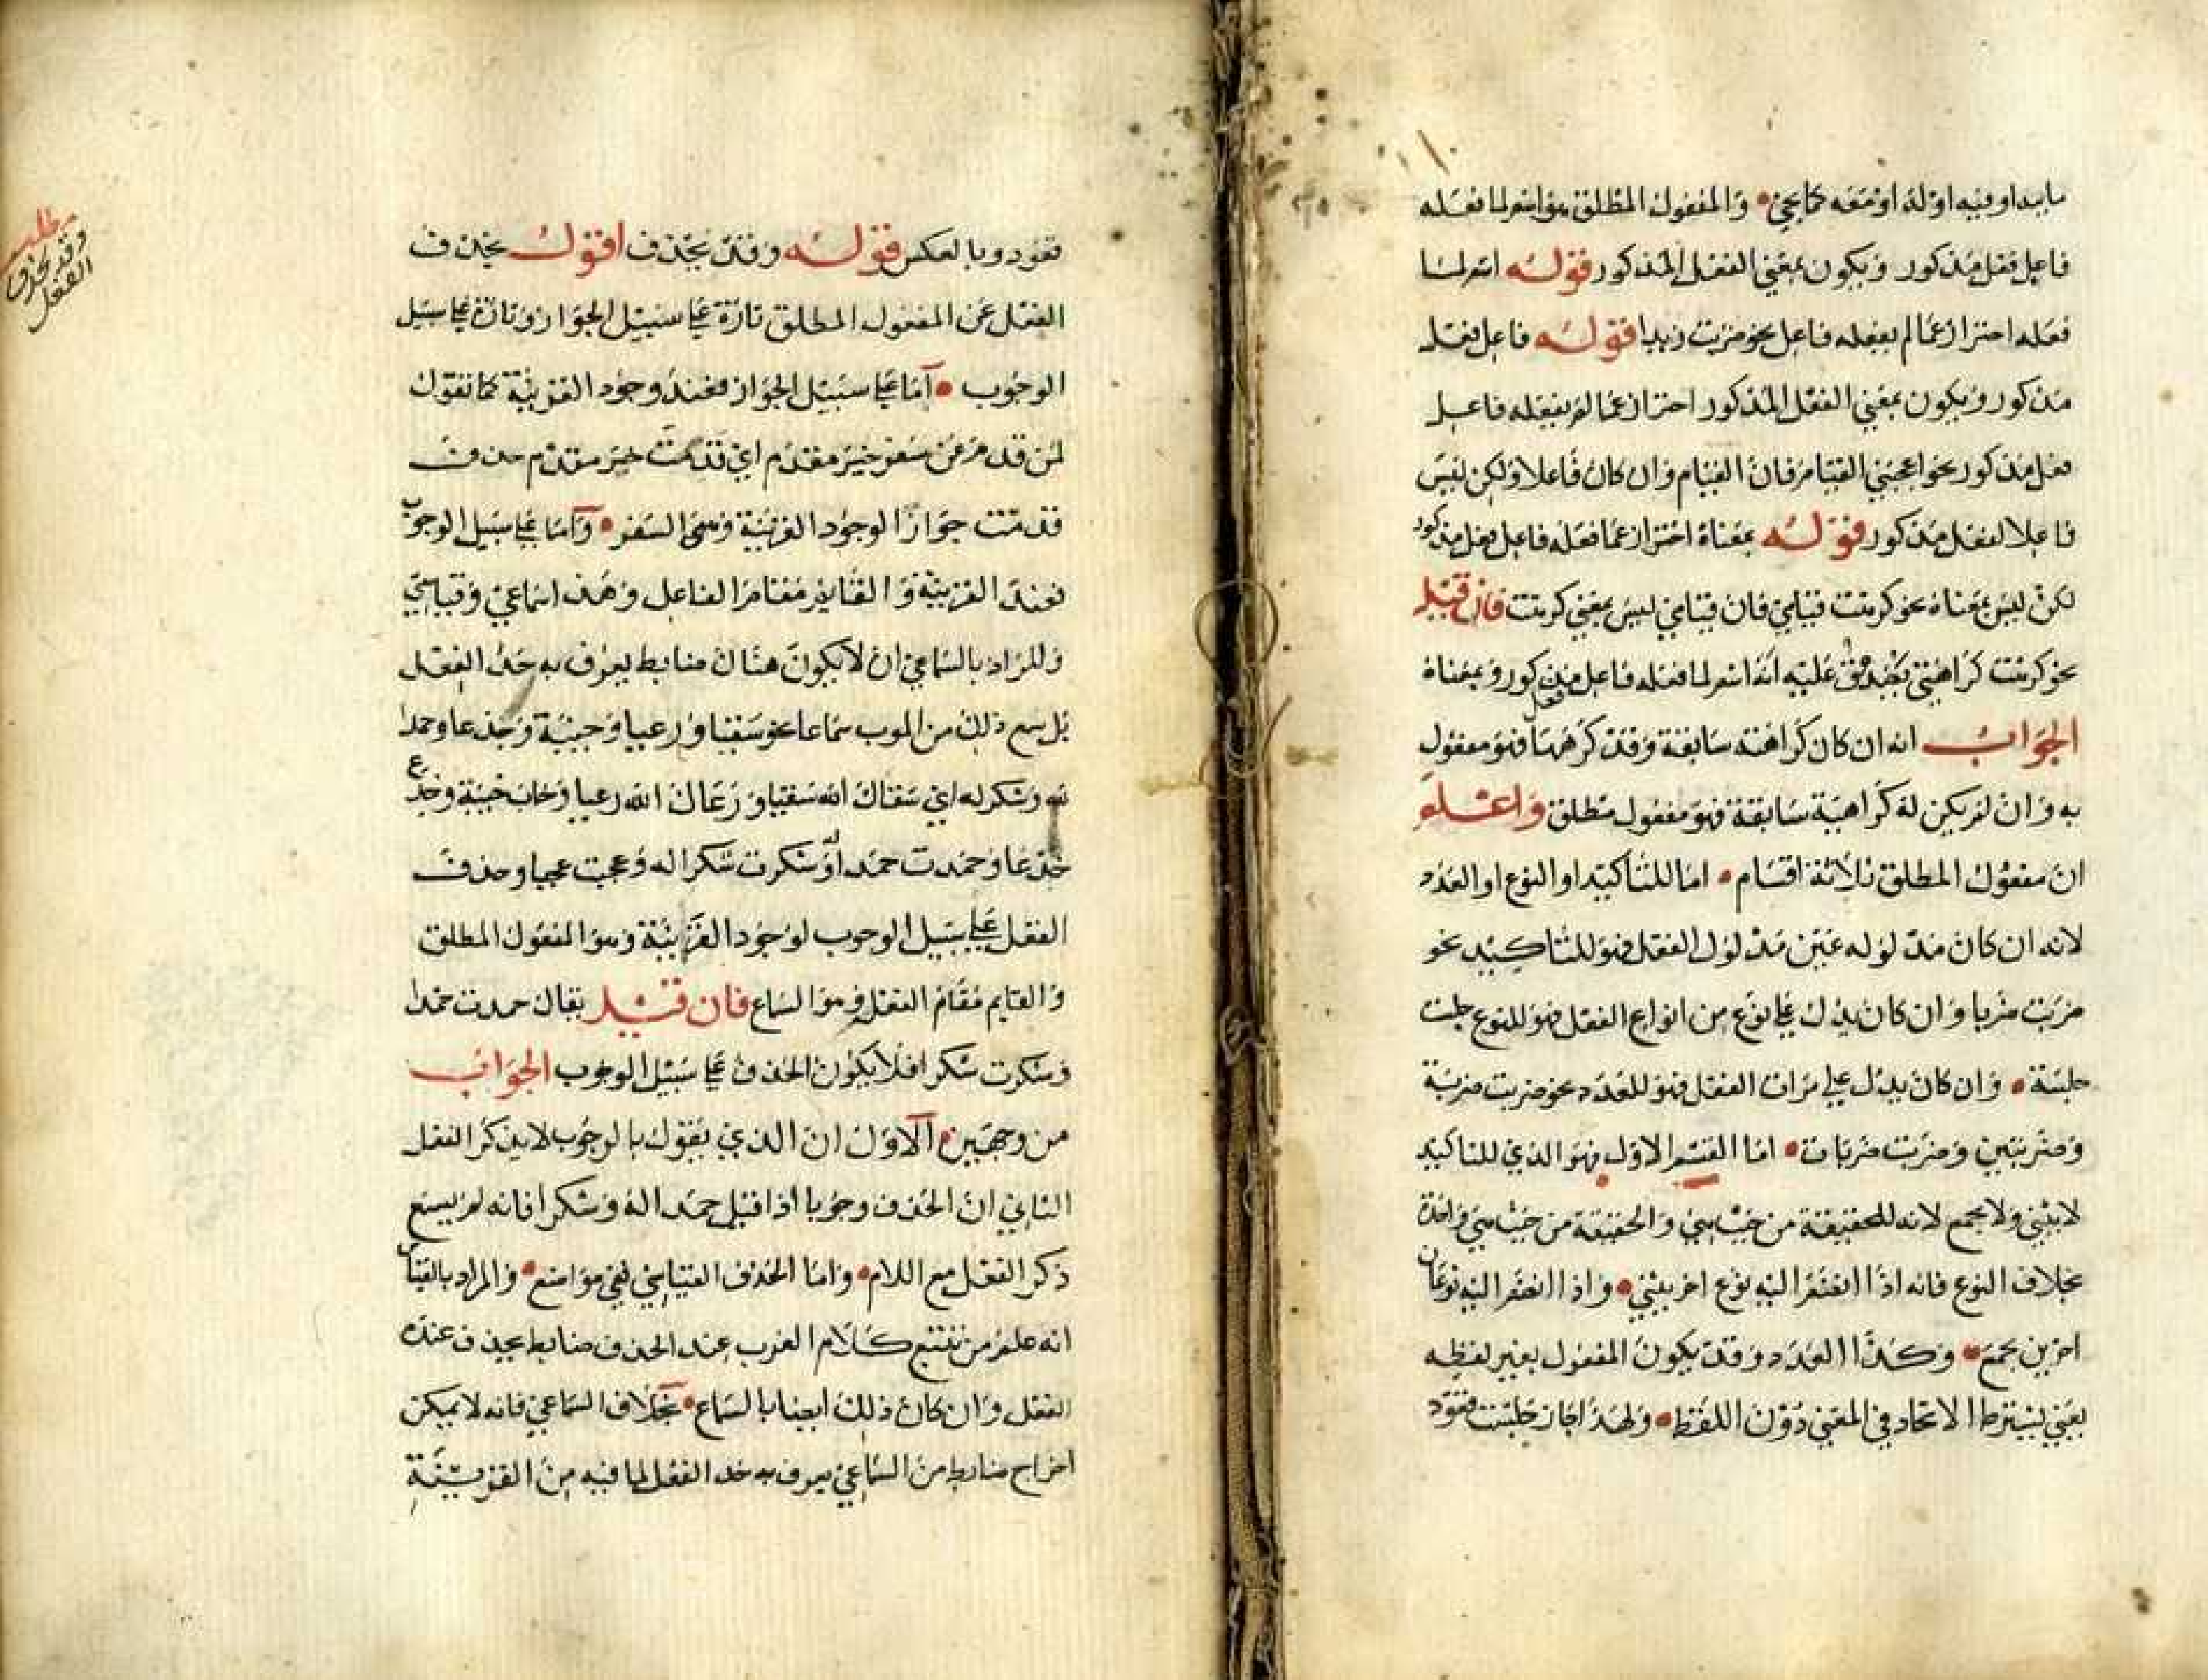 ما به او فيه او له او معه كما يجيئ والمفعول المطلق هو اسم لما فعله
فاعل فعل مذكور ويكون بمعني الفعل المذكور قوله اسم لما
فعله احترازعما لم يفعله فاعل نحو ضربت زيدا قوله فاعل فعل
مذكور ويكون بمعني الفعل المذكور احتراز عما لم يفعله فاعل
فعل مذكور نحو اعجبني القيام فان القيام وان كان فاعلا ولكن ليس
فاعلا لفعل مذكور قوله بمعناه احتراز عما فعله فاعل فعل مذكور
لكن ليس بمعناه نحو كرهت قيامي فان قيامي ليس بمعني كرهت فان قيل
نحو كرهت كراهتي يصدق عليه انه اسم لما فعله فاعل فعل مذكور وبمعناه
الجواب انه ان كان كراهته سابقة وقد كرهها فهو مفعول
به وان لم يكن له كراهية سابقة فهو مفعول مطلق واعلم
ان مفعول المطلق ثلاثة اقسام اما للتأكيد او النوع او العدد
لانه ان كان مدلوله عين مدلول الفعل فهو للتاكيد نحو
ضربت ضربا وان كان يدل علي نوع من انواع الفعل فهو للنوع جلست
جلسة وان كان يدل علي مرات الفعل فهو للعدد نحو ضربت ضربة
وضربتين وضربت ضربات اما القسم الاول فهو الذي للتاكيد
لا يثني ولا يجمع لانه للحقيقة من حيث هي والحقيقة من حيث هي واحدة
بخلاف النوع فانه اذا انضم اليه نوع اخر يثني واذا انضم اليه نوعان
اخرين يجمع وكذا العدد وقد يكون المفعول بغير لفظه
يعني يشترط الاتحاد في المعني دون اللفظ ولهذا جاز جلست قعود
قعود وبالعكس قوله وقد يحذف اقول يحذف
الفعل عن المفعول المطلق تارة علي سبيل الجواز وتارة علي سبيل
الوجوب اما علي سبيل الجواز فعند وجود القرينة كما تقول
لمن قدم عن سفر خير مقدم اي قدمت خير مقدم حذف
قدمت جوازا لوجود القرينة وهي السفر واما علي سبيل الوجوب
فعند القرينة والقايم مقام الفاعل وهذا سماعي وقياسي
والمراد بالسماعي ان لا يكون هناك ضابط يعرف به حذف الفعل
بل سمع ذلك من العرب سماعا نحو سقيا ورعيا وخيبة وجذعا وحمدا
له وشكرا له اي سقاك الله سقيا ورعاك الله رعيا وخاب خيبة وجذع
جذعا وحمدت حمدا له وشكرت شكرا له وعجبت عجبا وحذف
الفعل علي سبيل الوجوب لوجود القرينة وهو المفعول المطلق
والقايم مقام الفعل وهو السماع فان قيل يقال حمدت حمدا
وشكرت شكرا فلا يكون الحذف علي سبيل الوجوب الجواب
من وجهين الاول ان الذي يقول بالوجوب لا يذكر الفعل
الثاني ان الحذف وجوبا اذا قيل حمدا له وشكرا فانه لم يسمع
ذكر الفعل مع اللام واما الحذف القياسي ففي مواضع والمراد بالقياس
انه علم من تتبع كلام العرب عند الحذف ضابط يحذف عنده
الفعل وان كان ذلك ايضا بالسماع بخلاف السماعي فانه لا يمكن
اخراج ضابط من السماعي يعرف به حذف الفعل لما فيه من القرينة
مطلب
وقد يحذف
الفعل